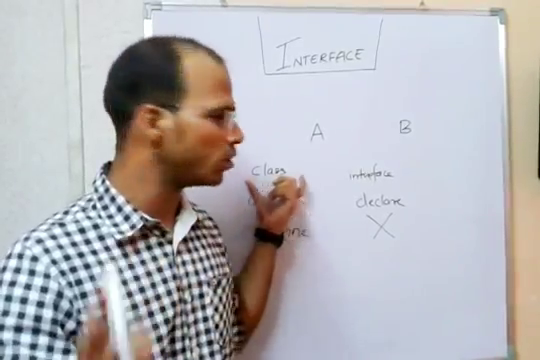 INTERFACE
A B
class interface
declare
X